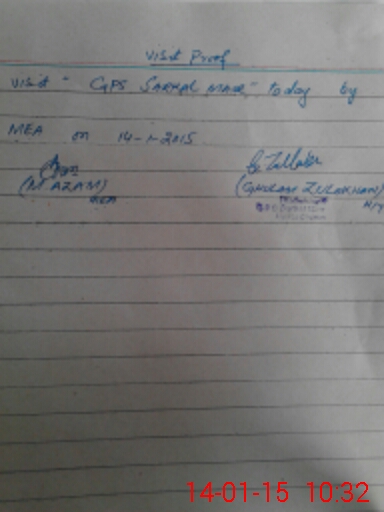 Visit Proof
Visit "GPS SARKAL MAAR" today by
MEA on 14-1-2015
(M AZAM)
MEA
(GHULAM ZULAKHAN)
H/T
14-01-15 10:32